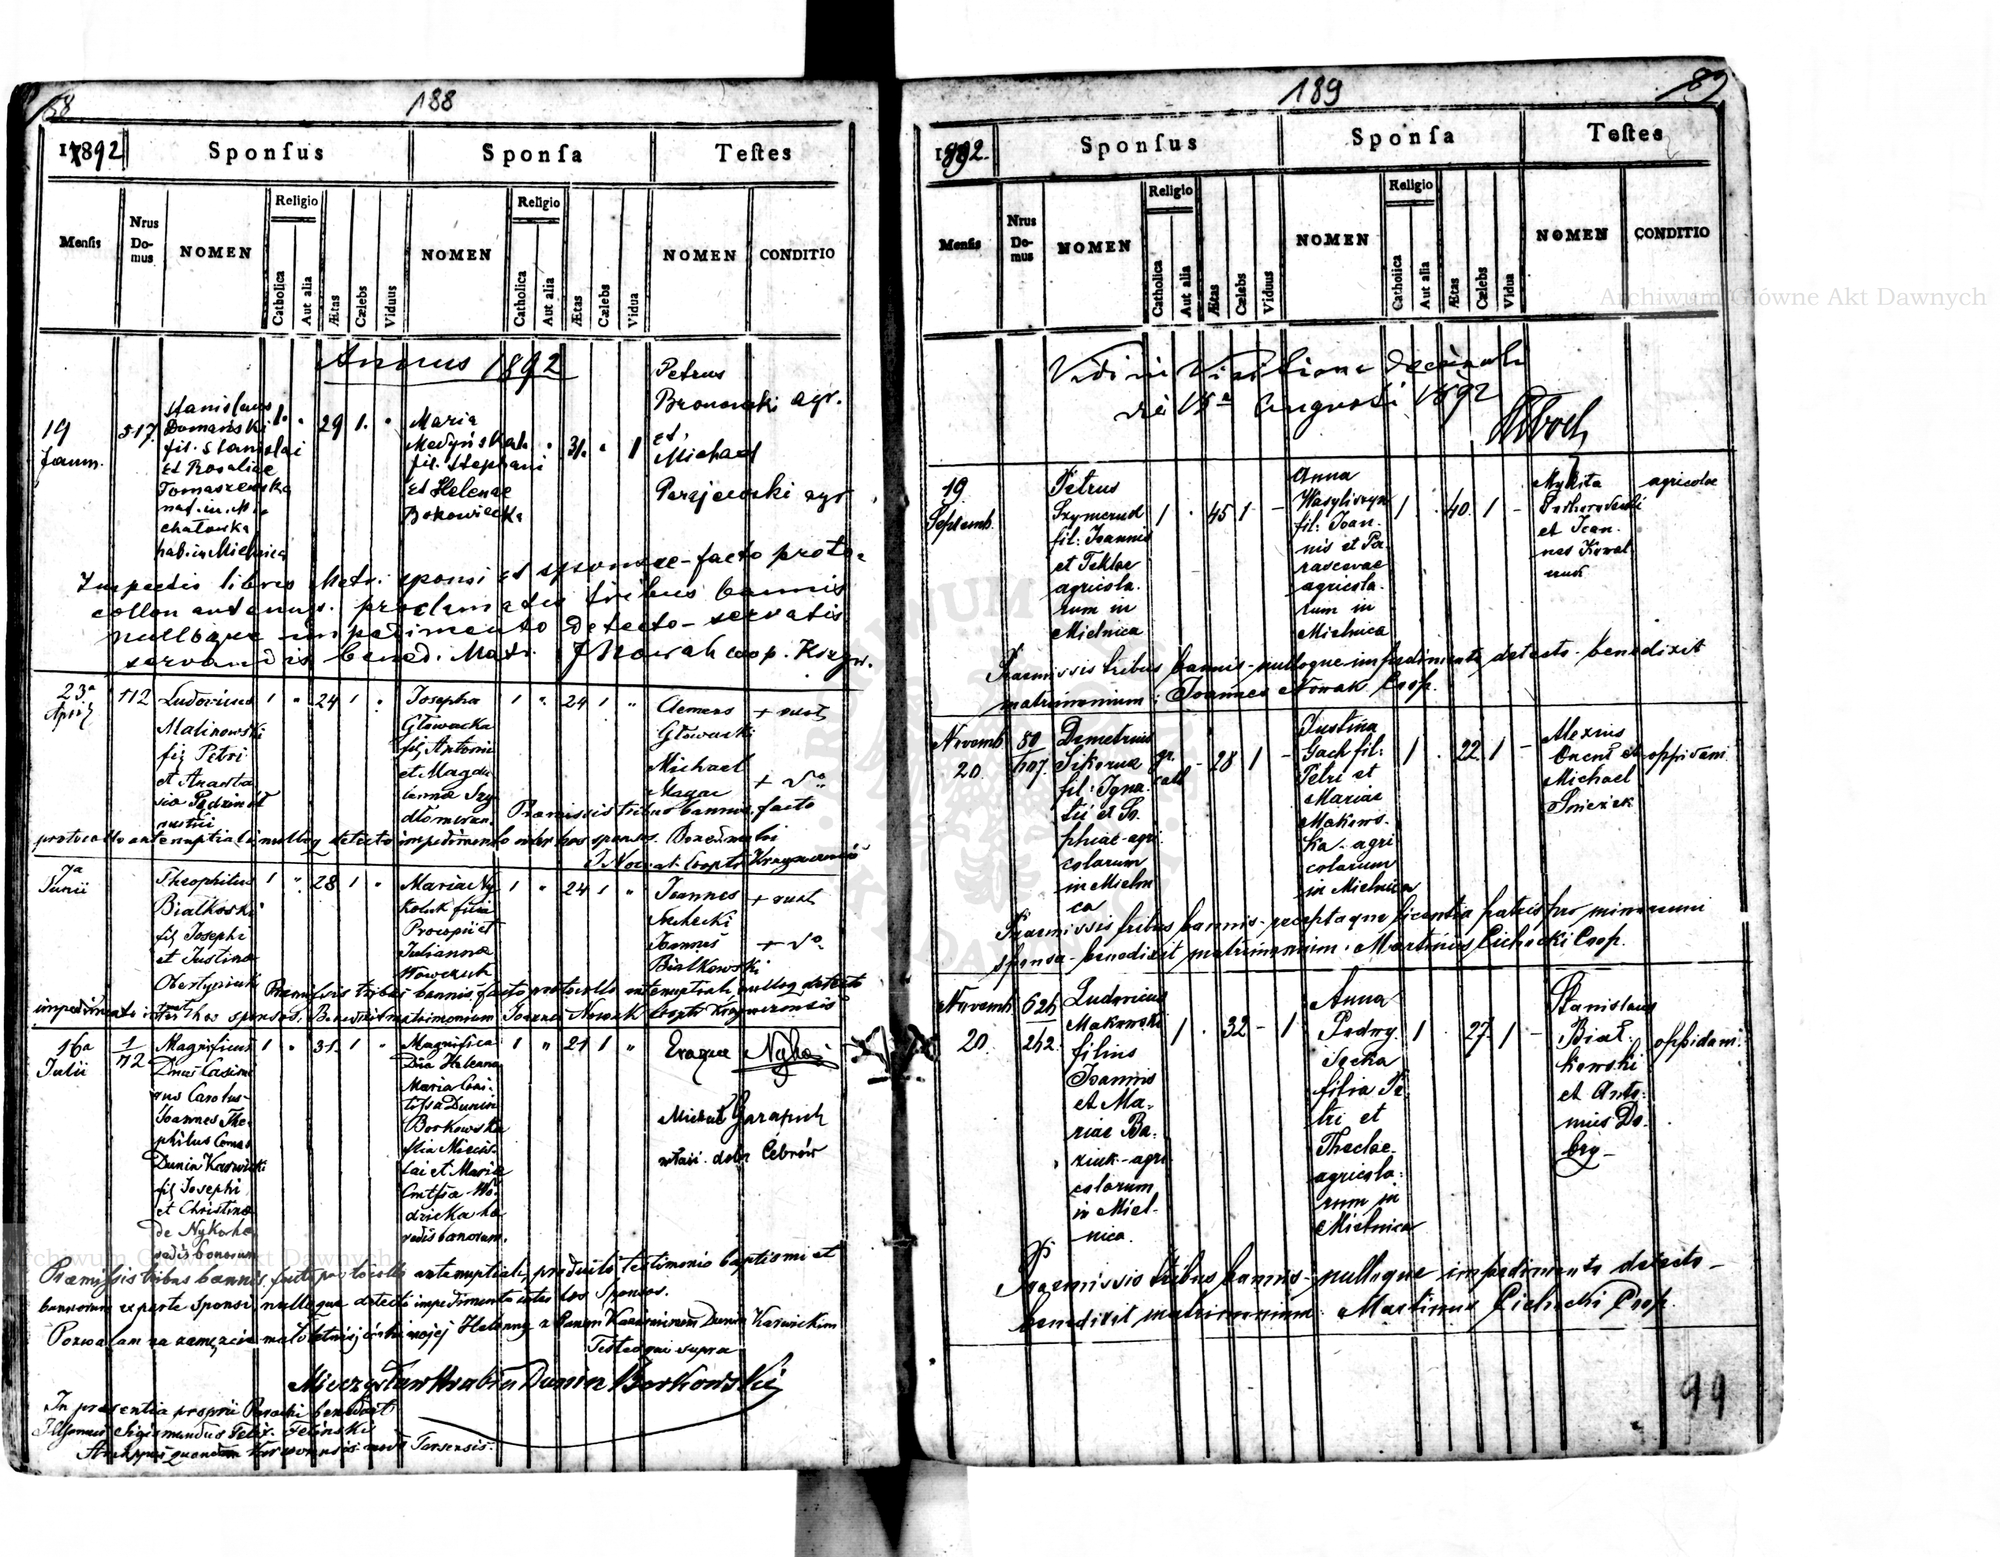 188
188
1892
Sponſus
Sponſa
Teſtes
Menſis
Nrus Do-mus
NOMEN
Religio
Catholica
Aut alia
Ætas
Cælebs
Viduus
NOMEN
Religio
Catholica
Aut alia
Ætas
Cælebs
Vidua
NOMEN
CONDITIO
Annus 1892
19
Jann.
517.
Stanislaus
Domański
fil. Stanislai
et Rosaliae
Tomaszewska
nat. in Mi
chałowka
hab. in Mielnica
1.
29
1.
Maria
Medyńska
fil. Stephani
et Helenae
Bokowiecka
31.
1
Petrus
Bronowski agr.
et
Michael
agr.
Inspectis libris Metr. sponsi et sponsae - facto proto-
collon antenup. proclamatis tribus bannis
nulloque impedimento detecto - servatis
servandis bened. Matr. J Nowak coop. Krzyw.
23a
April
112
Ludovicus
Malinowski
fil. Petri
et Anasta
siae
rustici
1
24
1
Josepha
Głowacka
fil. Antonii
et Magda
lenae Szy
1
24
1
Clemens
Głowacki
+ rust
Michael
+ do
Praemissis tribus bannis, facto
protocollo antenuptiali nulloq detecto impedimento inter hos sponsos. Benedixit
J Nowak Cooptr Krzywcensis
7a
Junii
Theophilus
Białkoski
fil. Josephi
et Justinae
Obertyniuk
1
28
1
Maria Ny
koluk filia
Procopii et
Julianna
1
24
1
Joannes
+ rust
Joannes
Białkowski
+ do
Praemissis tribus bannis, facto protocollo antenuptiali nulloq detecto
impedimento inter hos sponsos. Benedixit matrimonium Joannes Nowak Cooptr Krzywcensis
16a
Julii
1
72
Magnificus
Dnus Casimi
rus Carolus
Joannes The
philus Comes
Dunin Karwicki
fil. Josephi
et Christinae
de Nyko hae
redis bonorum
1
31.
1
Magnifica
Dna Helena
Maria Comi
tissa Dunin
Borkowska
filia Miecis
lai et Maria
Cmtssa Wo
dzicka hae
redis bonorum.
1
21
1
Michał Garapich
właśc. dóbr Cebrów
Praemissis tribus bannis, facto protocollo antenuptiali, producto testimonio baptismi et
bannorum ex parte sponsi, nulloque detecto impedimento inter hos sponsos.
Pozwalam na zamęzcie małoletniej córki mojej Helenny z Panem Kazimirzem Dunin Karwickim
Testes qui supra
Mieczysław Hrabia Dunin Borkowski
In presentia proprii Parochi benedixit
Illssimus Sigismundus Felix Feliński
Archppus quondam Varsaviensis modo Tarsensis.
189
189
1892.
Sponſus
Sponſa
Teſtes
Menſis
Nrus Do-mus
NOMEN
Religio
Catholica
Aut alia
Ætas
Cælebs
Viduus
NOMEN
Religio
Catholica
Aut alia
Ætas
Cælebs
Vidua
NOMEN
CONDITIO
Vidi in Visitatione Decanali
die 15a Augusti 1892
19
Septemb.
Petrus
Szymczuk
fil: Joannis
et Teklae
agricola-
rum in
Mielnica
1
45
1
Anna
Wasyliszyn
fil: Joan-
nis et Pa-
rascevae
agricola-
rum in
Mielnica
1
40
1
Mykita
et Joan-
nes Kowal
czuk
agricolae
Praemissis tribus bannis - nulloque impedimento detecto - benedixit
matrimonium: Joannes Nowak Coop.
Novemb
20.
80
607.
Demetrius
Sikorua
fil: Igna-
tii et So-
phiae - agri-
colarum
in Mielni
ca
gr.
cath
28
1
Justina
Gach fil:
Petri et
Mariae
Makows-
ka - agri
colarum
in Mielnica
1
22.
1
Alexius
et
Michael
oppidani
Praemissis tribus bannis - receptaque licentia patris pro minorenni
sponsa - benedixit matrimonium. Martinus Cichocki Coop.
Novemb.
20.
626
242.
Ludovicus
Makowski
filius
Joannis
et Ma-
riae Ba-
ziuk - agri-
colarum
in Miel-
nica.
1
32
1
Anna
Podwy-
socka
filia Pe-
tri et
Theclae
agricola-
rum in
Mielnica
1
27.
1
Stanislaus
Biał-
kowski
et Anto-
nius Do-
bry
oppidani.
Praemissis tribus bannis - nulloque impedimento detecto -
benedixit matrimonium. Martinus Cichocki Coop.
99
Archiwum Główne Akt Dawnych
Archiwum Główne Akt Dawnych